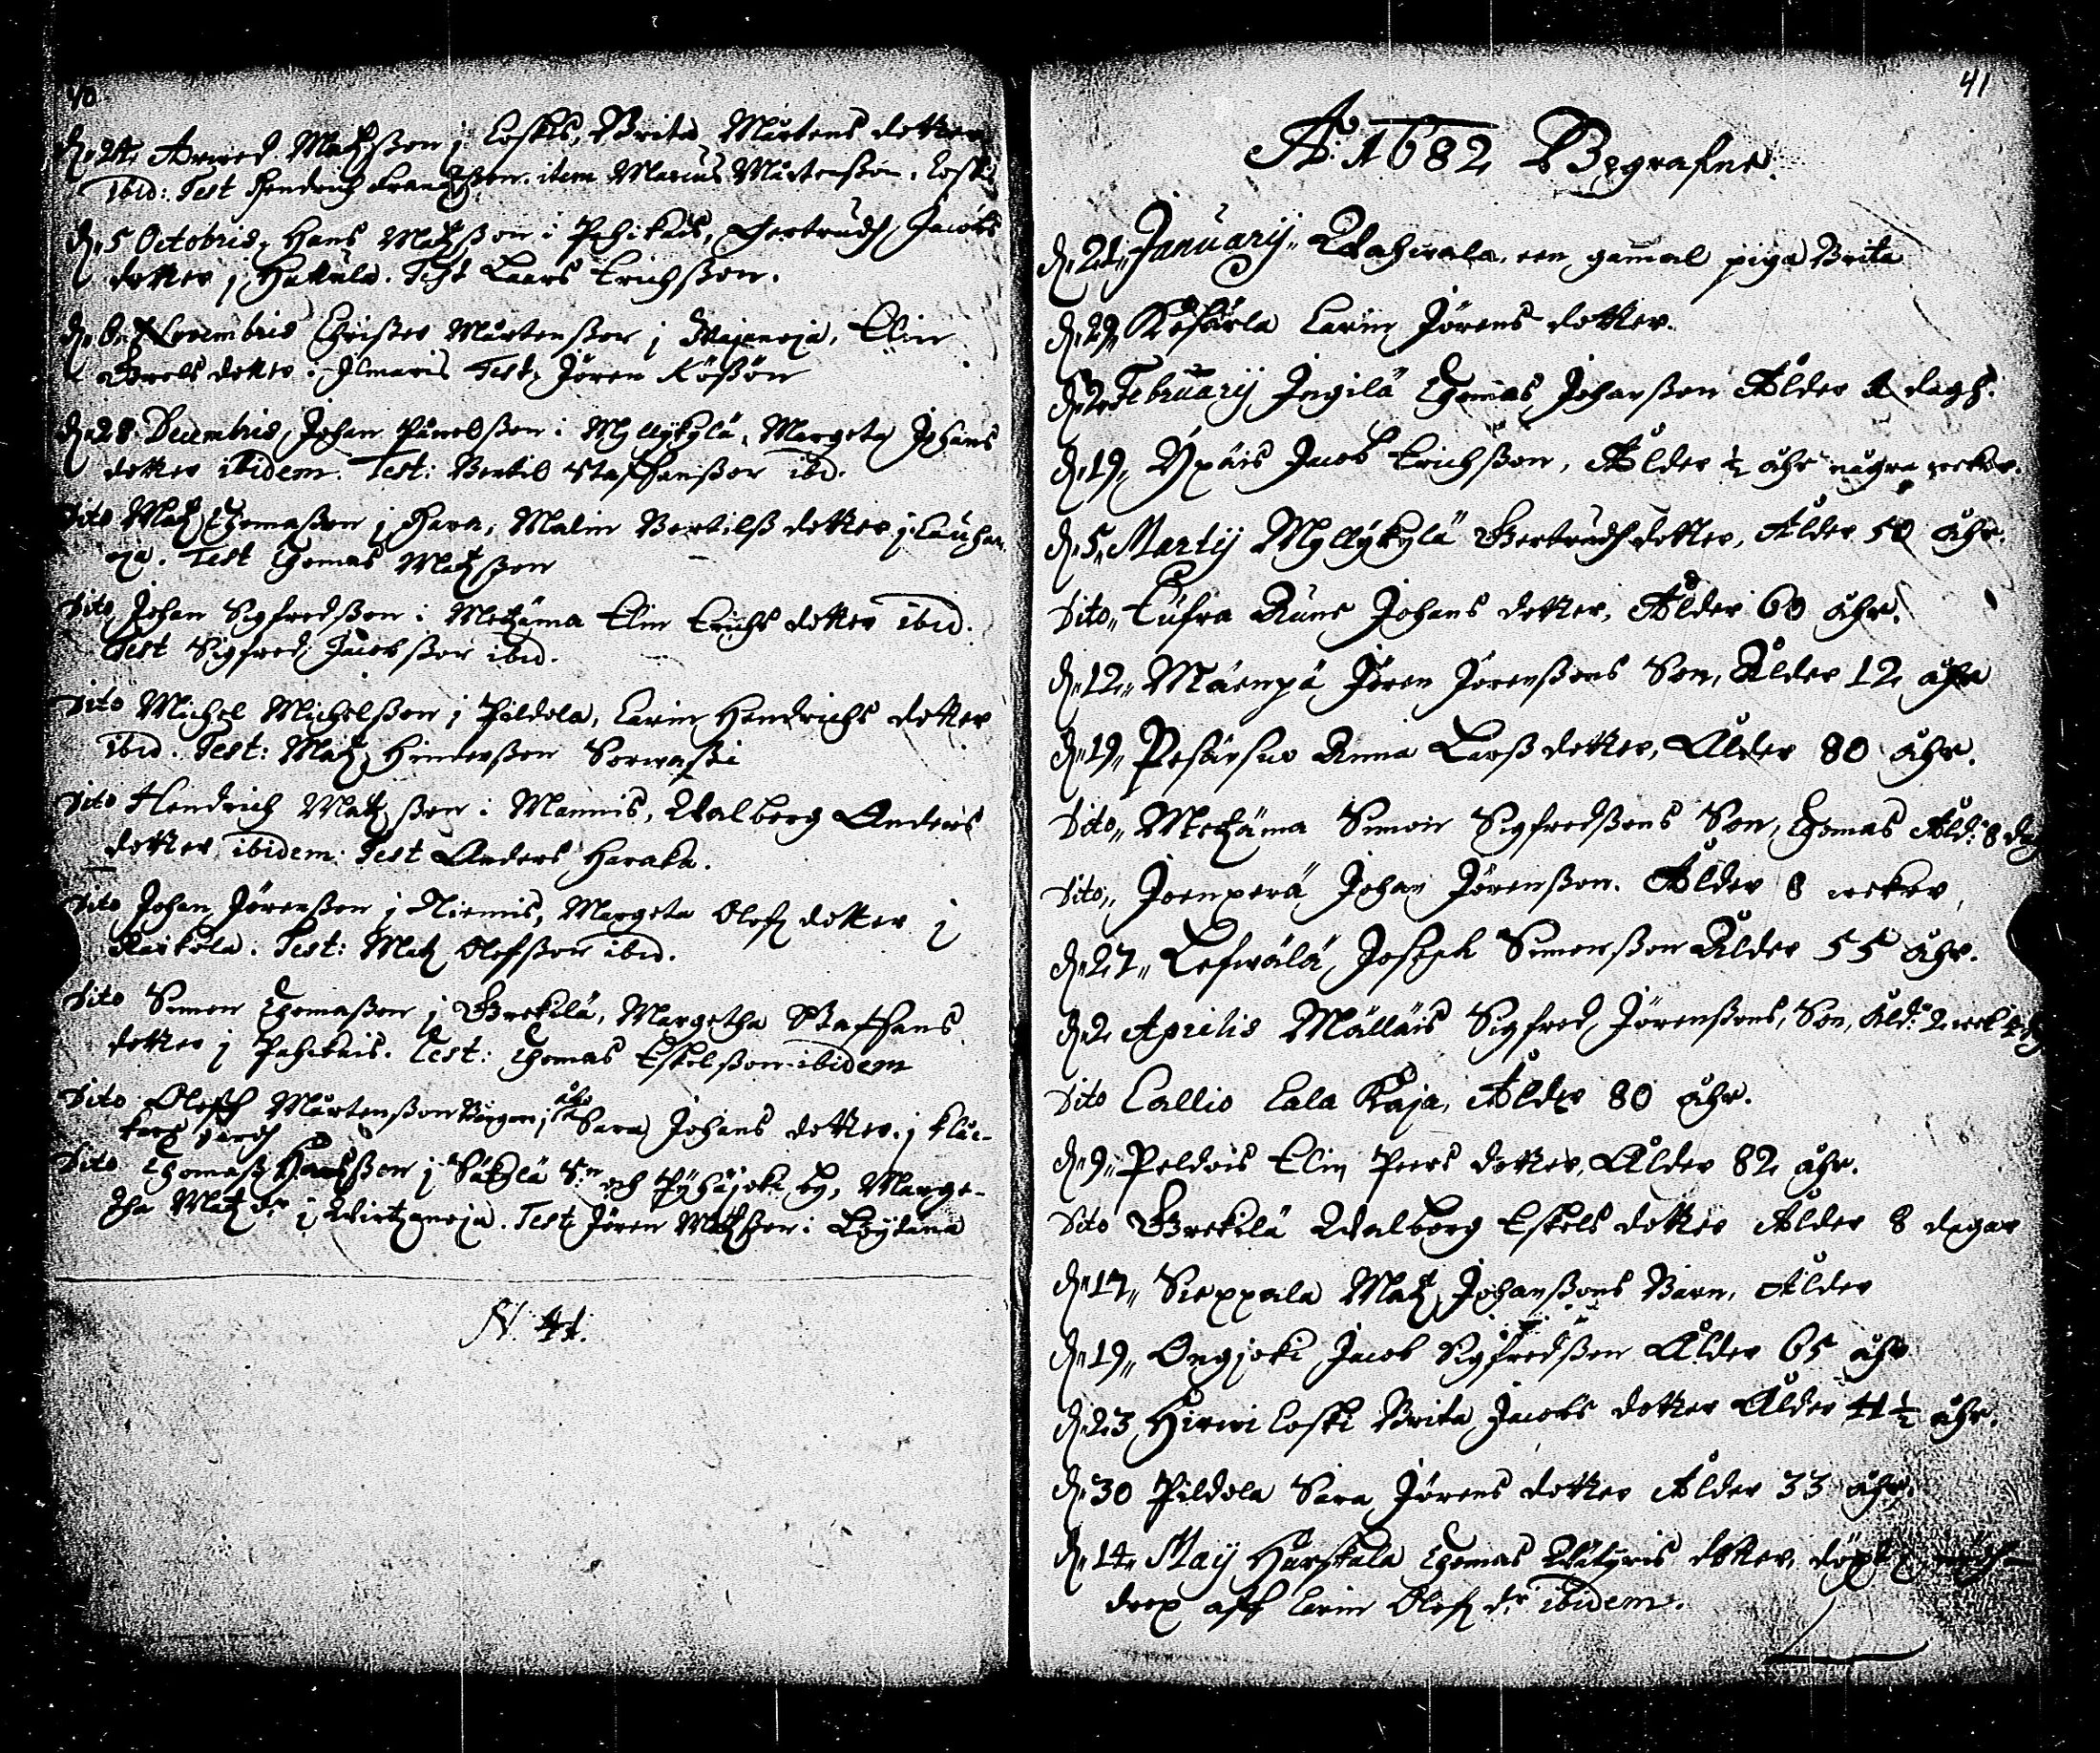 40
d. 24 Arwed Matzßon j Coskis, Brita Mårtens dotter
ibid: Test Hendrich Frantzßon item Marcus Mårtenßon. Coski
d. 5 Octobris, Hans Matzßon i Pehikais, Gertrudh Jacobs
dotter j Hakula. Test Laars Erichßon.
d. 6 Novembris Christer Mårtenßon j Majanoja, Elin
Bertils dotter. Ilmaris Test, Jören
d. 28 Decembris, Johan Påwelßon i Myllykylä, Margeta Johans
dotter ibidem. Test: Bertil Staffanßon ibd.
Dito Matz Thomaßon j Hava, Malin Bertilß dotter j Lauhan
oja. Test Thomas Matzßon
Dito Johan Sigfredßon i Metzäma Elin Erichs dotter ibid.
Test Sigfred Jacobßon ibid.
Dito Michel Michelßon j Pildola, Carin Hendrichs dotter
ibid. Test: Matz Sorwasti
Dito Hendrich Matzßon i Mannis, Walborg Anders
dotter ibidem. Test Anders Haraka.
Dito Johan Jörenßon j Niemis, Margeta Olofz dotter j
Raikola. Test: Matz Olofßon ibid.
Dito Simon Thomaßon j Grekilä, Margetha Staffans
dotter j Pehikais. Test: Thomas Eskelßon ibidem
Dito Oloff Mårtenßon j Sara Johans dotter j Kluc-
kars gårdh
Dito Thomas Hansßon j Säkylä Sn och Pyhäjoki by, Marge-
tha Matz dr j Wirtzanoja. Test Jören Matzßon i Löytäna
N. 44.
41
Ao 1682 Begrafne.
d. 21 Januarij Wahwala, een gammal piga Brita
d. 29 Kösärla Carin Jörens dotter.
d. 2 Februarij Ingilä Thomas Johanßon Ålder 4 dagh.
d. 19 Ypäis Jacob Erichßon, Ålder ½ åhr några wekor.
d. 5 Martij Myllykylä Gertrudh dotter, Ålder 50 åhr.
Dito Johans dotter, Ålder 60 åhr.
d. 12 Mäenpä Jören Jörenßons Son, Ålder 12 åhr
d. 19 Pesäsuo Anna Larß dotter, Ålder 80 åhr.
Dito Metzäma Simon Sigfredßons Son, Thomas Åld: 8 dag
Dito Joenperä Johan Jörenßon. Ålder 8 wekor
d. 27 Lefwälä Joseph Simonßon Ålder 55 åhr.
d. 2 Aprilis Mälläis Sigfred Jörenßons, Son, Åld: 2 wek 4 dg
Dito Callio Lala Kaja, Ålder 80 åhr.
d. 9 Peldois Elin Peers dotter, Ålder 82 åhr.
Dito Grekilä Walborg Eskels dotter Ålder 8 dagar
d. 17 Sieppala Matz Johanßons Barn, Ålder
d. 19 Ongjoki Jacob Sigfredßon Ålder 65 åhr
d. 23 Hirwi Coski Brita Jacobs dotter Ålder 41 ½ åhr.
d. 30 Pildola Sara Jörens dotter Ålder 33 åhr.
d. 14 Maij Thomas dotter, döpt
aff Carin Olofz dr ibidem.